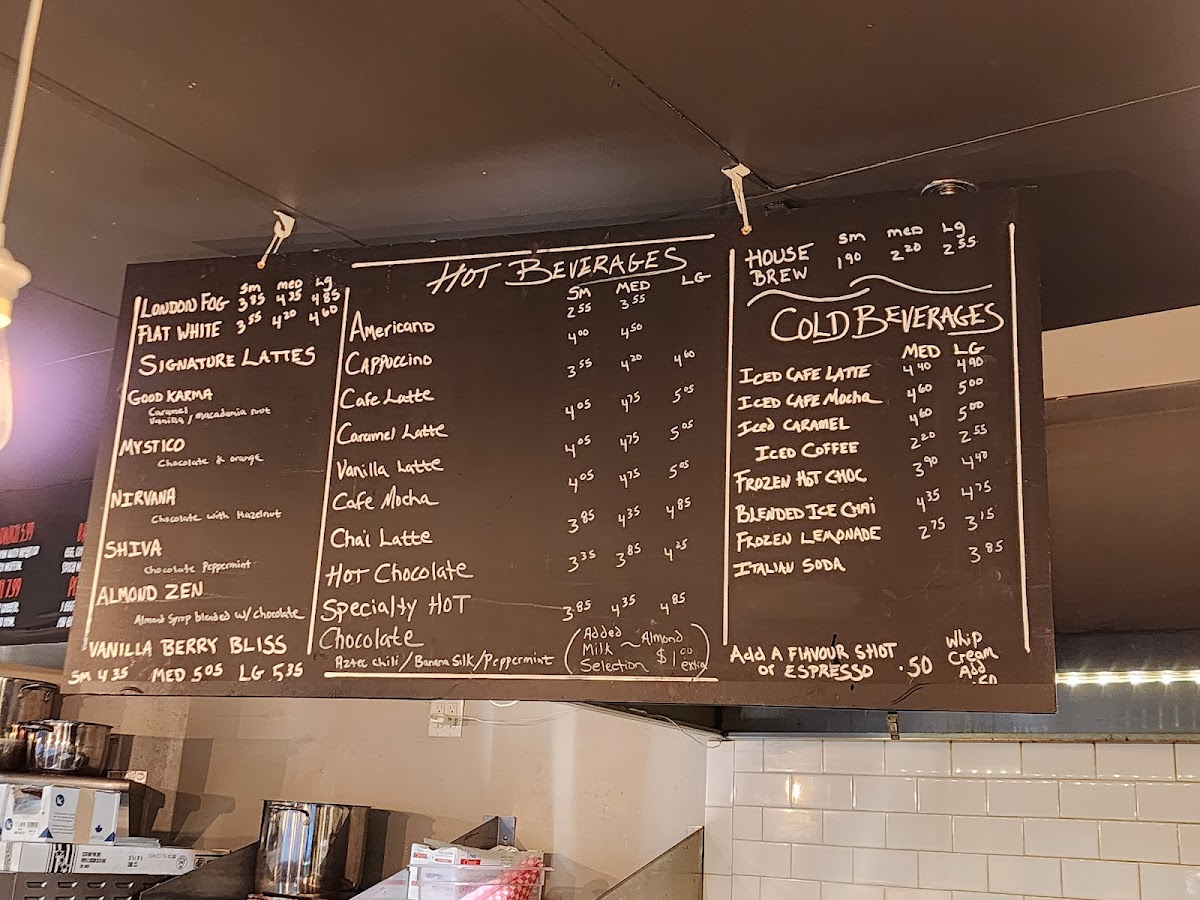 Sm med Lg
LONDON FOG 3.85 4.35 4.85
FLAT WHITE 3.55 4.20 4.60
SIGNATURE LATTES
GOOD KARMA
Caramel,
Vanilla, macadamia nut
MYSTICO
Chocolate & orange
NIRVANA
Chocolate with Hazelnut
SHIVA
Chocolate Peppermint
ALMOND ZEN
Almond Syrup blended w/ chocolate
VANILLA BERRY BLISS
SM 4.35 MED 5.05 LG 5.35
HOT BEVERAGES
SM MED LG
Americano 2.55 3.55
Cappuccino 4.00 4.50
Cafe Latte 3.55 4.20 4.60
Caramel Latte 4.05 4.75 5.05
Vanilla Latte 4.05 4.75 5.05
Cafe Mocha 4.05 4.75 5.05
Chai Latte 3.85 4.35 4.85
HOT Chocolate 3.35 3.85 4.25
Specialty HOT 3.85 4.35 4.85
Chocolate
Aztec Chili / Banana Silk / Peppermint
Added
Milk ~ Almond
Selection $1.00 extra
Sm med Lg
HOUSE
BREW 1.90 2.20 2.55
COLD BEVERAGES
MED LG
ICED CAFE LATTE 4.40 4.90
ICED CAFE MOCHA 4.60 5.00
Iced CARAMEL 4.60 5.00
ICED COFFEE 2.20 2.55
FROZEN HOT CHOC 3.90 4.40
BLENDED ICE CHAI 4.35 4.75
FROZEN LEMONADE 2.75 3.15
ITALIAN SODA 3.85
ADD A FLAVOUR SHOT
OF ESPRESSO .50
Whip
Cream
Add
.50